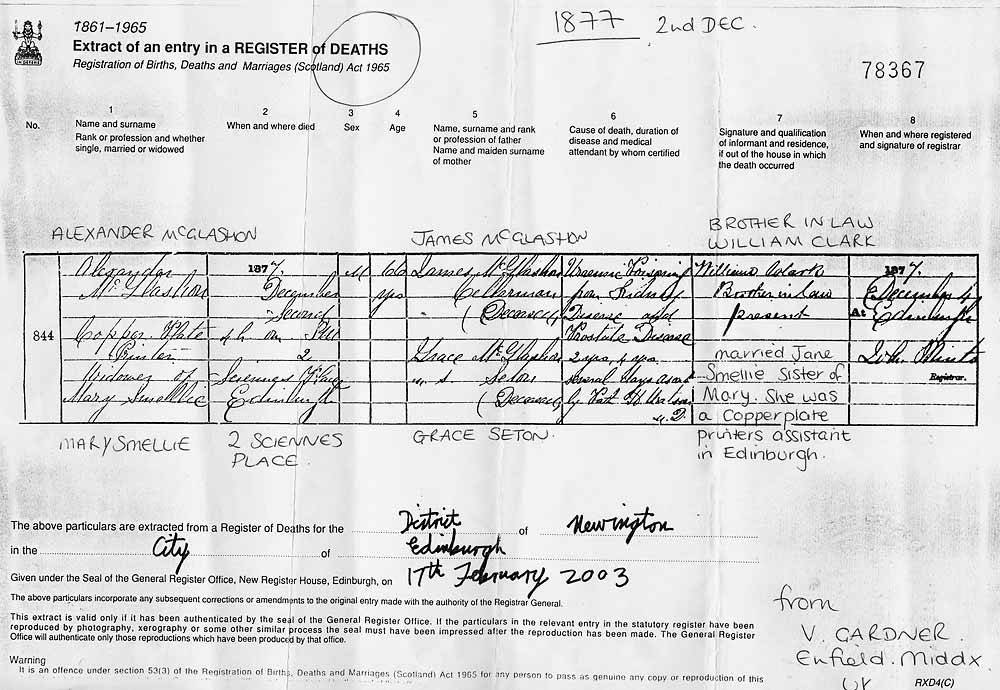 1861–1965
Extract of an entry in a REGISTER of DEATHS
Registration of Births, Deaths and Marriages (Scotland) Act 1965
1877 2nd DEC.
78367
1 2 3 4 5 6 7 8
No.
Name and surname
Rank or profession and whether
single, married or widowed
When and where died
Sex
Age
Name, surname and rank
or profession of father
Name and maiden surname
of mother
Cause of death, duration of
disease and medical
attendant by whom certified
Signature and qualification
of informant and residence,
if out of the house in which
the death occurred
When and where registered
and signature of registrar
ALEXANDER McGLASHON
JAMES McGLASHON
BROTHER IN LAW
WILLIAM CLARK
844
Alexander
McGlashon
Copper Plate
Printer
Widower of
Mary Smellie
1877.
December
Second
4 h
2
Sciennes Place
Edinburgh
M
66
yrs
James McGlashon
Cellarman
(Deceased)
Grace McGlashon
Seton
(Deceased)
Uraemic Poisoning
from Kidney
Disease and
Prostate Disease
2 yrs
several days
by
M.D.
William Clark
Brother in Law
present
married Jane
Smellie Sister of
Mary. She was
a Copperplate
printers assistant
in Edinburgh.
1877.
December 4
At Edinburgh
Registrar.
MARY SMELLIE
2 SCIENNES
PLACE.
GRACE SETON.
The above particulars are extracted from a Register of Deaths for the District of Newington
in the City of Edinburgh
Given under the Seal of the General Register Office, New Register House, Edinburgh, on 17th February 2003
The above particulars incorporate any subsequent corrections or amendments to the original entry made with the authority of the Registrar General.
This extract is valid only if it has been authenticated by the seal of the General Register Office. If the particulars in the relevant entry in the statutory register have been
reproduced by photography, xerography or some other similar process the seal must have been impressed after the reproduction has been made. The General Register
Office will authenticate only those reproductions which have been produced by that office.
Warning
It is an offence under section 53(3) of the Registration of Births, Deaths and Marriages (Scotland) Act 1965 for any person to pass as genuine any copy or reproduction of this
from
V. GARDNER.
Enfield. Middx
UK
RXD4(C)